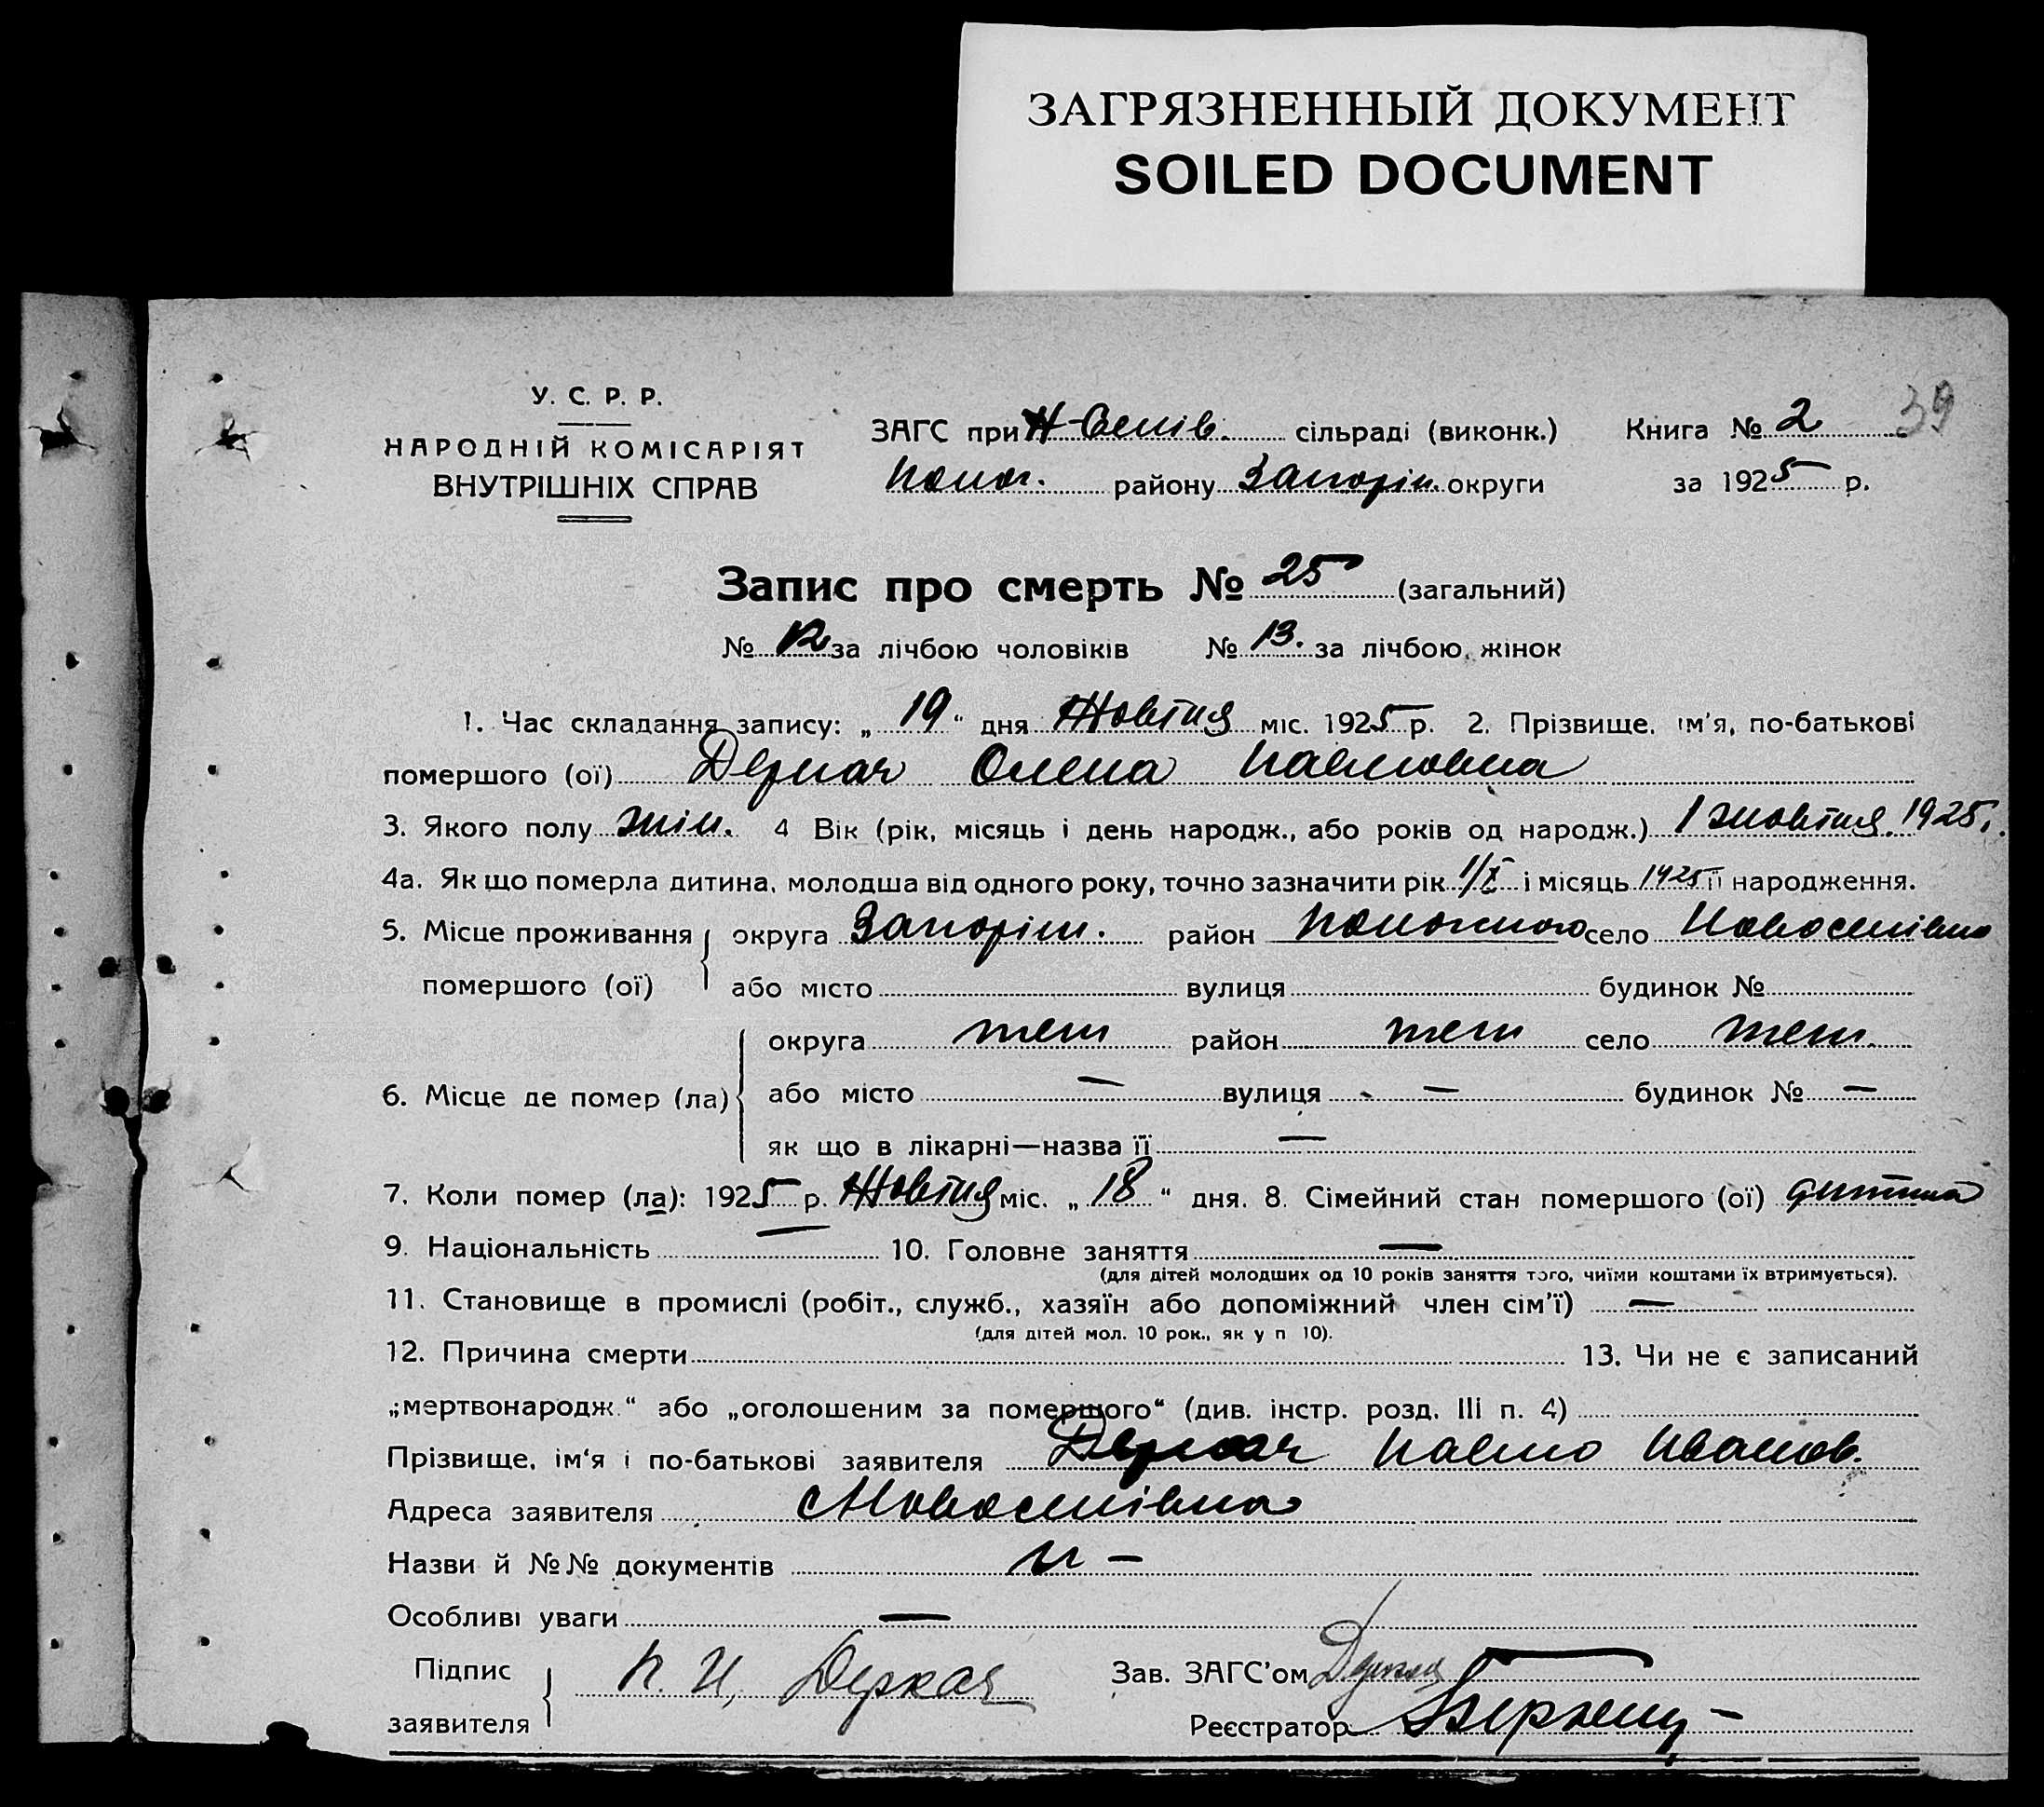 ЗАГРЯЗНЕННЫЙ ДОКУМЕНТ
SOILED DOCUMENT
39
У. С. Р. Р.
НАРОДНІЙ КОМІСАРІЯТ
ВНУТРІШНІХ СПРАВ
ЗАГС при сільраді (виконк.) Книга № 2
Полог. району Запоріж. округи за 1925 р.
Запис про смерть № 25 (загальний)
№ 12 за лічбою чоловіків № 13. за лічбою жінок
1. Час складання запису: „ 19 “ дня Жовтня міс. 1925 р. 2. Прізвище, ім'я, по-батькові
помершого (ої) Деркач Олена Павловна
3. Якого полу жін. 4 Вік (рік, місяць і день народж., або років од народж.) 1 жовтня 1925 р.
4а. Як що померла дитина, молодша від одного року, точно зазначити рік 1/X і місяць 1925 її народження.
5. Місце проживання округа Запоріж. район село Новоселівка
помершого (ої) або місто вулиця будинок №
округа теж район теж село теж.
6. Місце де помер (ла) або місто — вулиця — будинок № —
як що в лікарні—назва її —
7. Коли помер (ла): 1925 р. Жовтня міс. „ 18 “ дня. 8. Сімейний стан помершого (ої) дитина
9. Національність — 10. Головне заняття —
(для дітей молодших од 10 років заняття того, чиїми коштами їх втримується).
11. Становище в промислі (робіт., служб., хазяїн або допоміжний член сім'ї) —
(для дітей мол. 10 рок., як у п 10).
12. Причина смерти 13. Чи не є записаний
„мертвонародж.“ або „оголошеним за помершого“ (див. інстр. розд. III п. 4)
Прізвище, ім'я і по-батькові заявителя Деркач Павло Иванов.
Адреса заявителя Новоселівка
Назви й №№ документів —
Особливі уваги —
Підпис П. И. Деркач Зав. ЗАГС'ом
заявителя Реєстратор